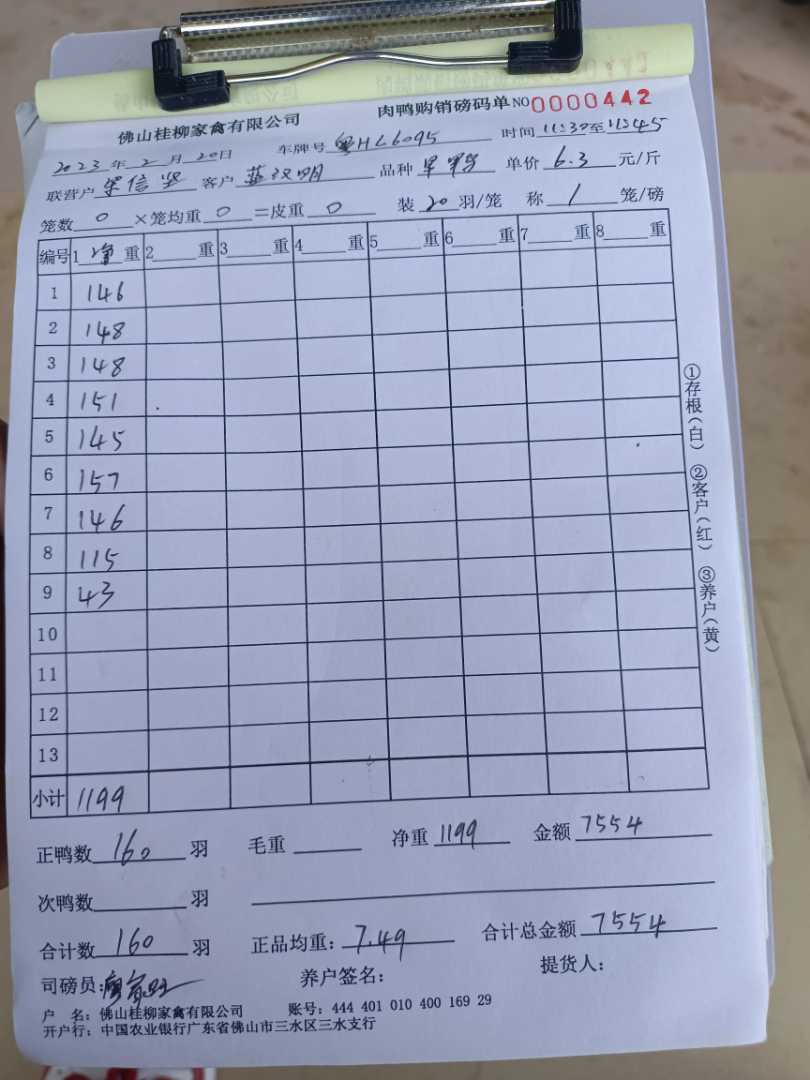 佛山桂柳家禽有限公司 肉鸭购销磅码单 NO 0000442
2023年2月20日 车牌号 粤HL6095 时间 11:30至11:45
联营户 信 客户 汉明 品种 单价 6.3 元/斤
笼数 0 ×笼均重 0 =皮重 0 装 20 羽/笼 称 1 笼/磅
编号 1 净 重 2 重 3 重 4 重 5 重 6 重 7 重 8 重
1 146
2 148
3 148
4 151
5 145
6 157
7 146
8 115
9 43
10
11
12
13
小计 1199
正鸭数 160 羽 毛重 净重 1199 金额 7554
次鸭数 羽
合计数 160 羽 正品均重: 7.49 合计总金额 7554
司磅员: 养户签名: 提货人:
户 名: 佛山桂柳家禽有限公司 账号: 444 401 010 400 169 29
开户行: 中国农业银行广东省佛山市三水区三水支行
①存根(白) ②客户(红) ③养户(黄)